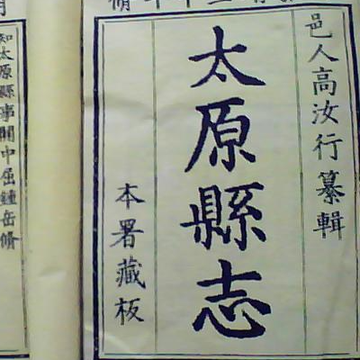 邑人高汝行纂輯
太原縣志
本署藏板
知太原縣事關中屈鍾岳脩